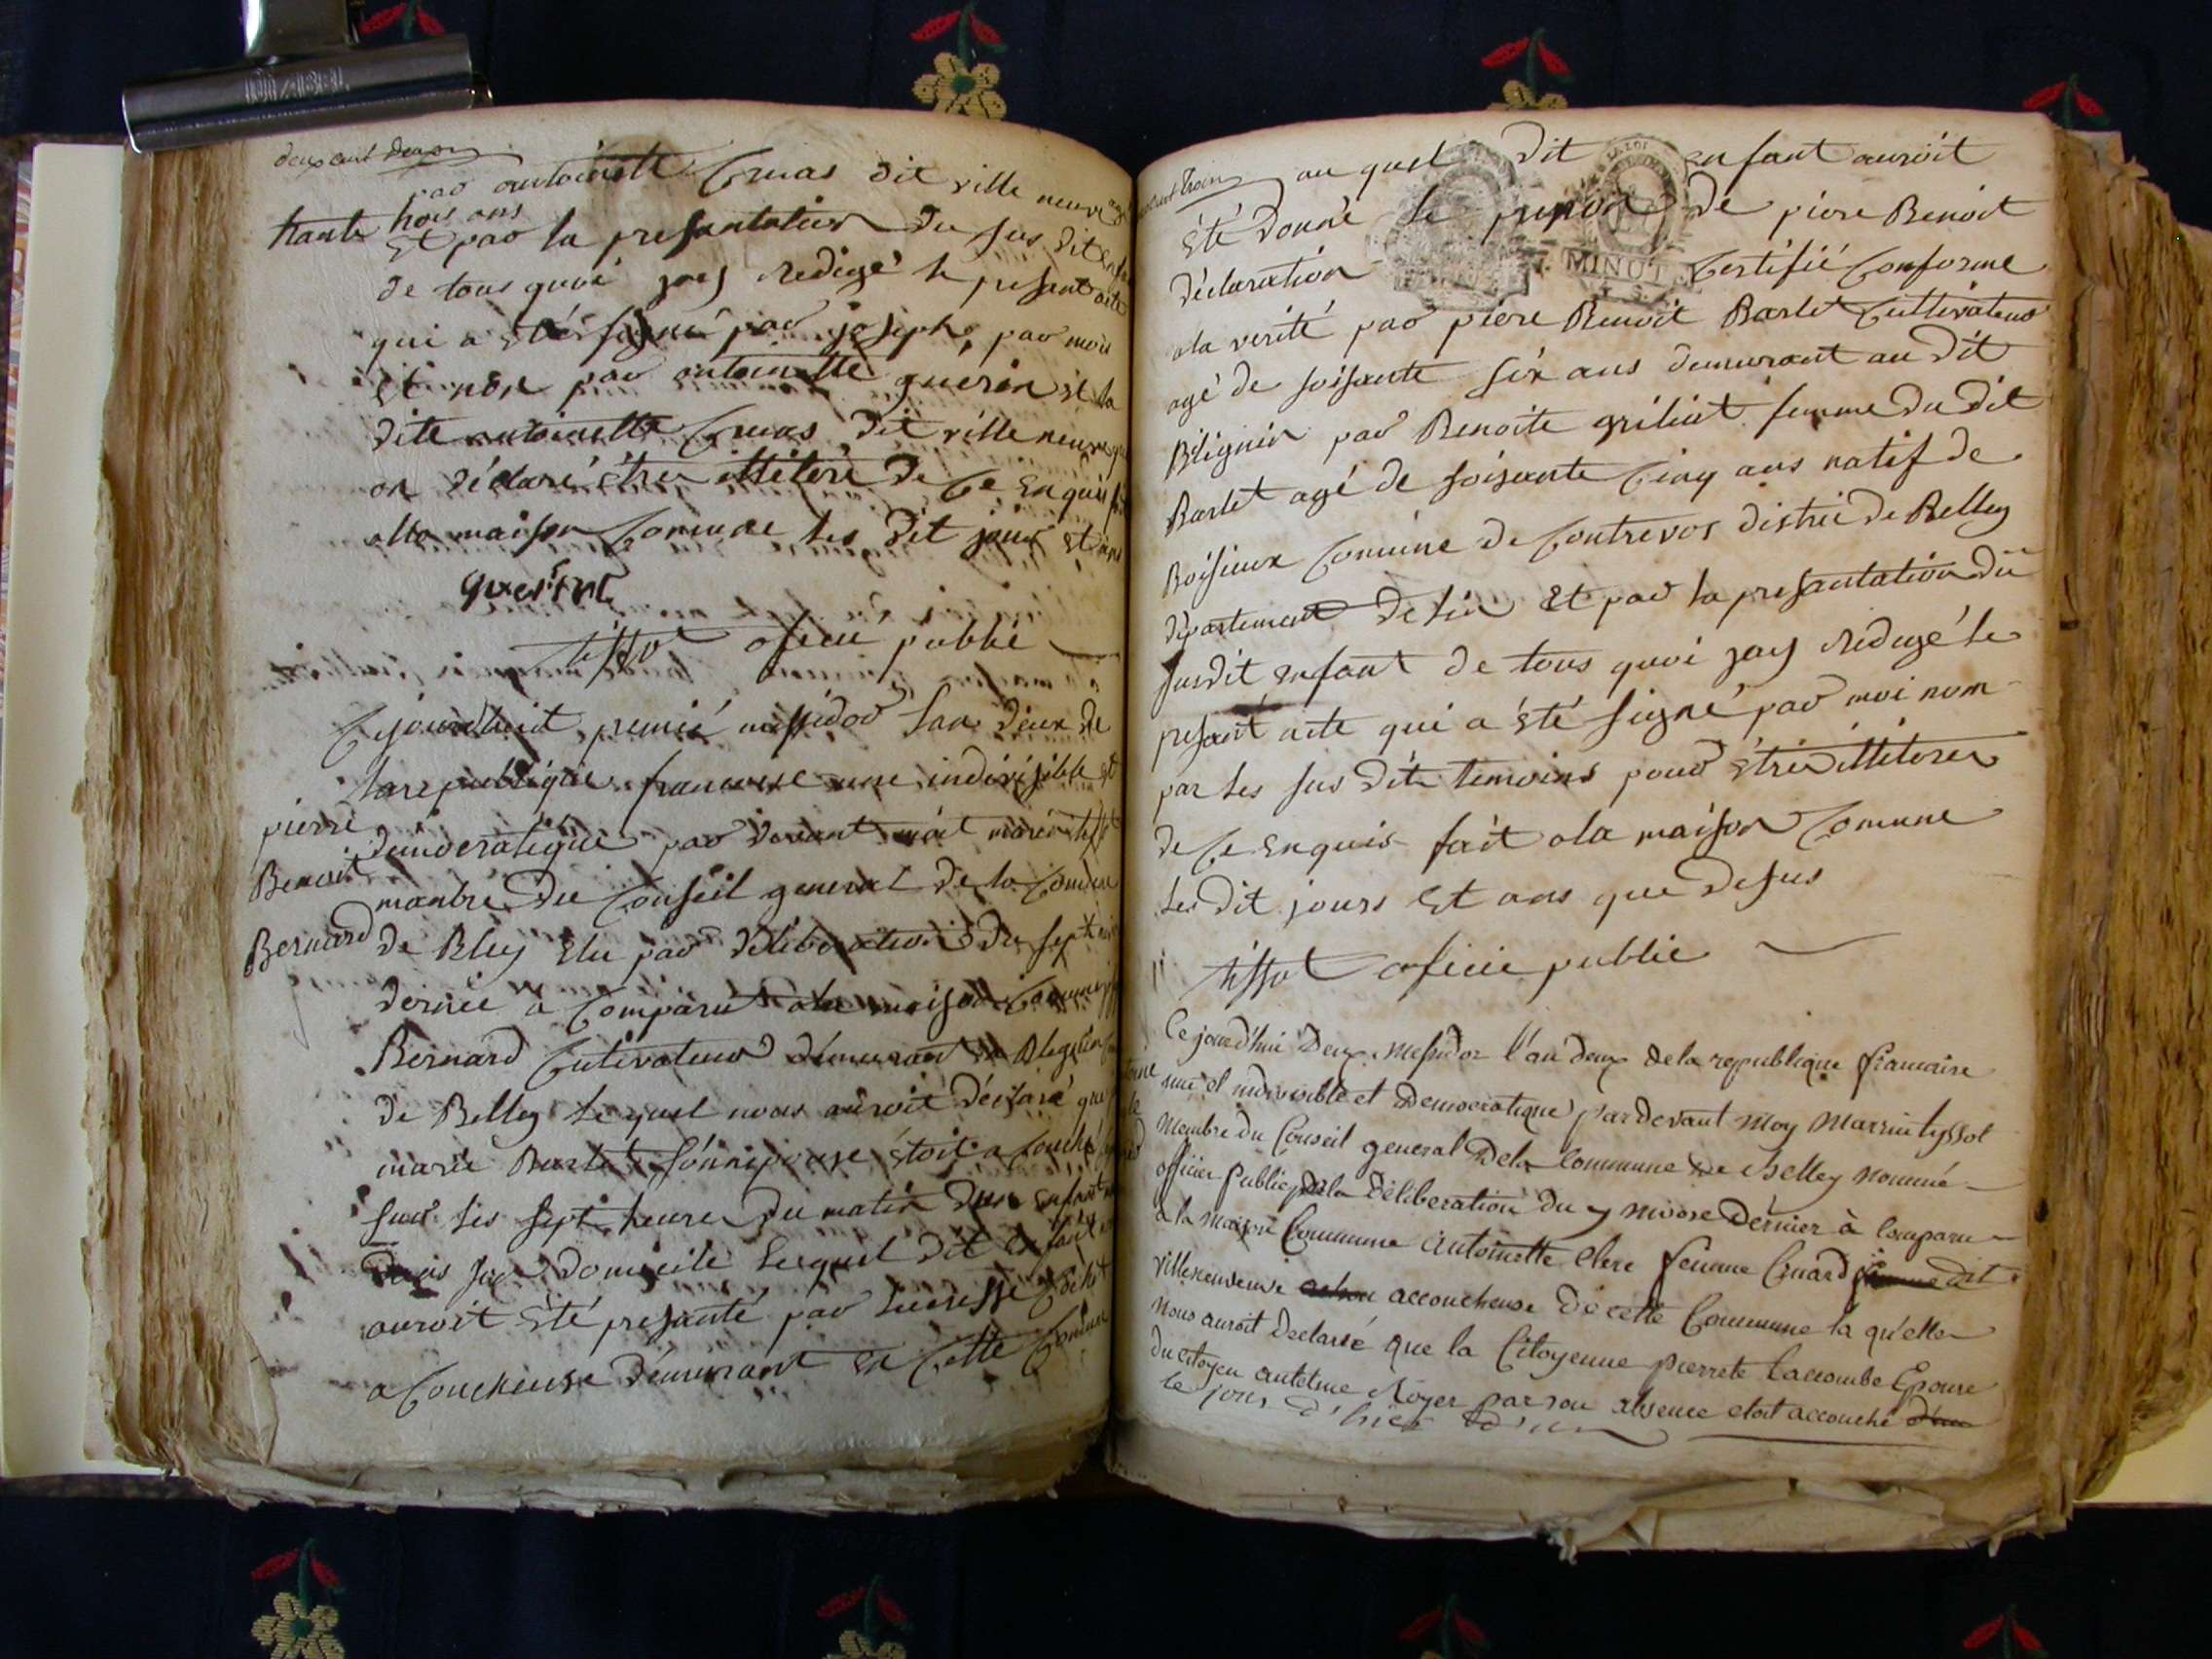 deux cent deux
par antoinette Cruas dit ville neuve
trante trois ans
Et par la presantation du sus dit
de tous quoi jaÿ redigé le presant acte
qui a été signé par joseph, par moi
Et non par antoinette guerin et la
dite antoinette Cruas dit ville neuve
on déclaré être illiteré de Ce Enquis
ala maison Comune les dit jour et
guerin
tissot oficié publié
Cejourdhuit premié messidor lan deux de
la republique francoise une indivisible et
pierre
democratique par devant moi marin tissot
Benoit
manbre du Conseil general de la Comune
Bernard
de Blley Elu par deliberation du sept
dernié a Comparut ala maison Comune
Bernard Cutivateur demurant a Bligni
de Belley lequel nous auroit déclaré que
marie Barlet sonnépouse étoit acouché
sur les sept heure du matin dun enfant
dans son domicile lequel dit Enfant
auroit été presanté par
a Coucheuse demurant en Cette Comune
au quel dit enfant auroit
été donné le prenon de piere Benoit
déclaration Certifié Conforme
ala verité par piere Benoit Barlet Cultivateur
agé de soisante six ans demurant au dit
Bilignin par Benoite griliet femme du dit
Barlet agé de soisante Cinq ans natif de
Boisieux Comune de Contrevos distric de Belley
département de lin Et par la presantation du
susdit enfant de tous quoi jaÿ redigé le
presant acte qui a été signé par moi non
par les sus dit temoins pour être illiterer
de Ce Enquis fait ala maison Comune
les dit jours Et ans que desus
tissot oficié publié
MINUT
LA LOI
Ce jourd'hui deux messidor l'an deux de la republique francaise
une et indivisible et Democratique pardevant moy marin tyssot
membre du Conseil general dela Commune de Belley nommé
officier public par la deliberation du 7 nivose dernier à comparu
a la maison Commune antoinette clerc femme Cruard dit
villeneuve accoucheuse de cette Commune la qu'elle
nous auroit declarée que la Citoyenne pierrete lacombe Epouse
du citoyen antelme Royer par son absence etoit accouché d'un
le jour d'hier d'un